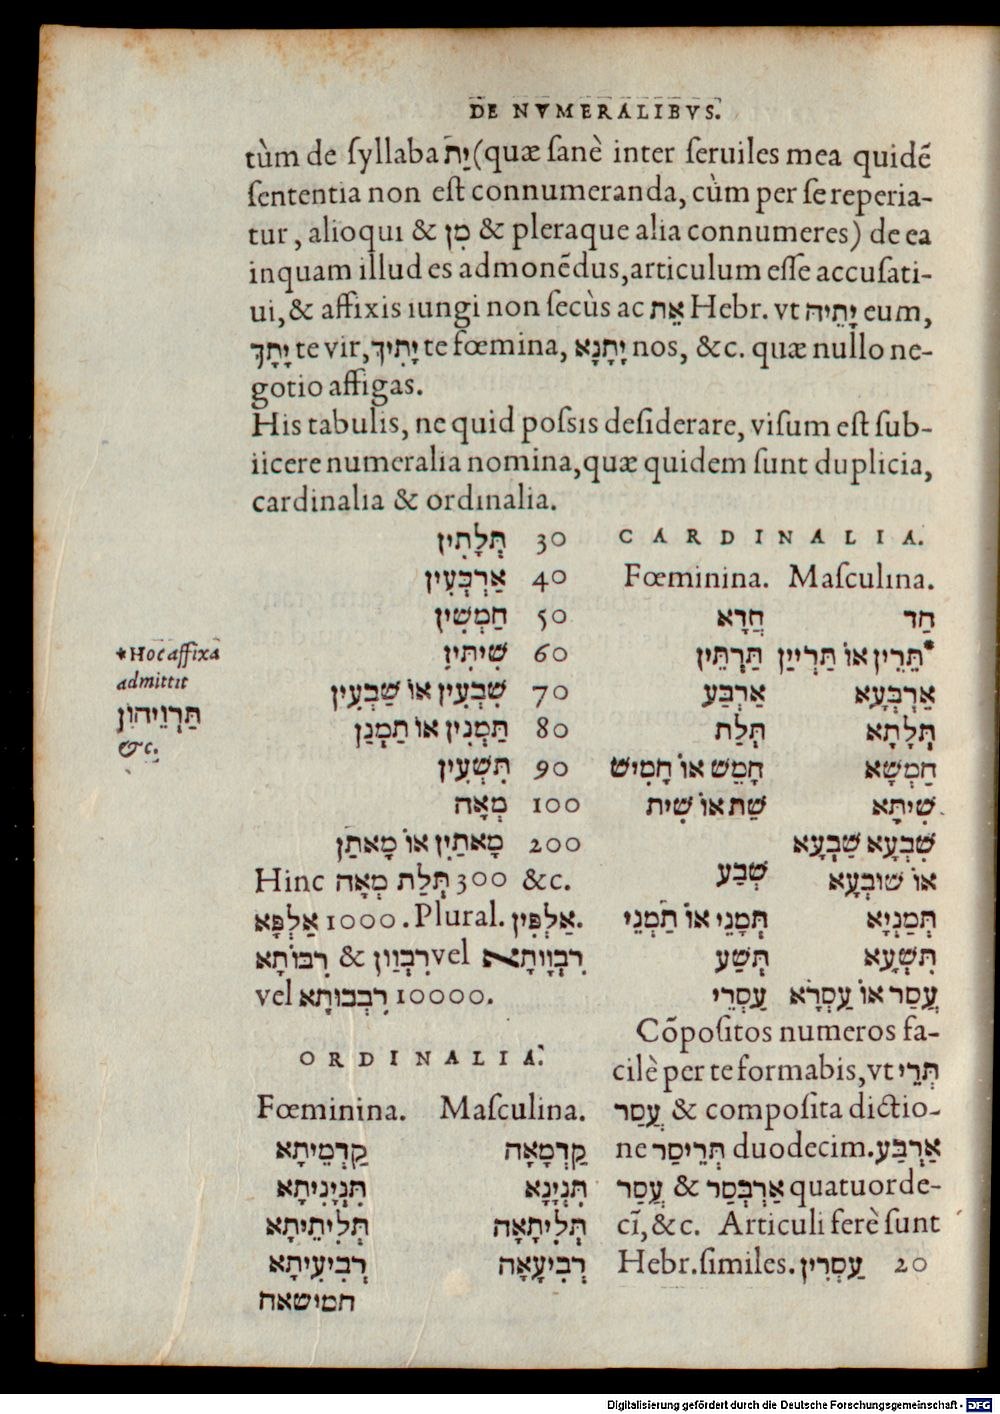 DE NVMERALIBVS.
tùm de ſyllaba יַת (quæ ſanè inter ſeruiles mea quidē
ſententia non eſt connumeranda, cùm per ſe reperia-
tur, alioqui & מִן & pleraque alia connumeres) de ea
inquam illud es admonēdus, articulum eſſe accuſati-
ui, & affixis iungi non ſecùs ac אֵת Hebr. vt יָתֵיהּ eum,
יָתָךְ te vir, יָתִיךְ te fœmina, יָתָנָא nos, &c. quæ nullo ne-
gotio affigas.
His tabulis, ne quid poſsis deſiderare, viſum eſt ſub-
iicere numeralia nomina, quæ quidem ſunt duplicia,
cardinalia & ordinalia.
CARDINALIA.
Fœminina. Maſculina.
חַד חֲדָא
*תְּרֵין אוֹ תַּרְיַיַן תַּרְתֵּין
אַרְבְּעָא אַרְבַּע
תְּלָתָא תְּלַת
חַמְשָׁא חָמֵשׁ אוֹ חָמִישׁ
שִׁיתָּא שֵׁת אוֹ שִׁית
שִׁבְעָא שַׁבְעָא
אוֹ שׁוּבְעָא שְׁבַע
תְּמַנְיָא תְּמָנֵי אוֹ תַמְנֵי
תִּשְׁעָא תְּשַׁע
עֲסַר אוֹ עַסְרָא עַסְרֵי
Cōpoſitos numeros fa-
cilè per te formabis, vt תְּרֵי
עֲסַר & compoſita dictio-
ne תְּרֵיסַר duodecim. אַרְבַּע
עֲסַר & אַרְבְּסַר quatuorde-
cī, &c. Articuli ferè ſunt
Hebr. ſimiles. עַסְרִין 20
תְּלָתִין 30
אַרְבְּעִין 40
חַמְשִׁין 50
שִׁיתִּין 60
שִׁבְעִין אוֹ שַׁבְעִין 70
תַּמְנִין אוֹ תַּמְנַן 80
תִּשְׁעִין 90
מְאָה 100
מָאתַיִן אוֹ מָאתַן 200
Hinc תְּלַת מְאָה 300 &c.
אַלְפָּא 1000. Plural. אַלְפִּין.
רִבּוֹתָא & רִבְוָון vel רִבְוָותָא
vel רִבְבוּתָא 10000.
ORDINALIA.
Fœminina. Maſculina.
קַדְמָאָה קַדְמֵיתָא
תִּנְיָנָא תִּנְיָנִיתָא
תְּלִיתָאָה תְּלִיתֵיתָא
רְבִיעָאָה רְבִיעִיתָא
חמישאה
*Hoc affixa
admittit
תַּרְוֵיהוֹן
&c.
Digitalisierung gefördert durch die Deutsche Forschungsgemeinschaft - DFG